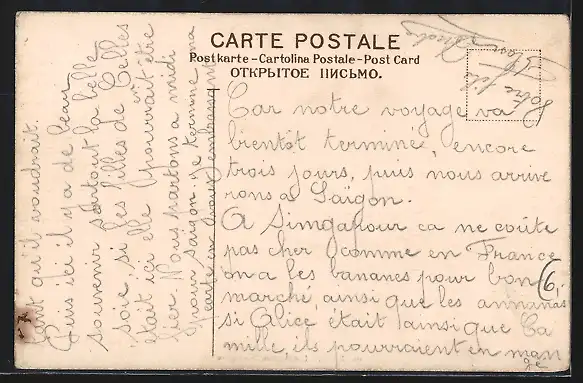 CARTE POSTALE
Postkarte - Cartolina Postale - Post Card
ОТКРЫТОЕ ПИСЬМО.
Car notre voyage va
bientôt terminé, encore
trois jours, puis nous arrive
rons a Saïgon.
A Simgapour ca ne coûte
pas cher comme en France
on a les bananes pour bon
marché, ainsi que les annanas
si Alice était ainsi que Ca
mille, ils pourraient en man
ge
6
tant qu'il voudrait.
Puis ici il y a de beau
souvenir surtout la belle
soie, si les filles de Celles
était ici elle pourrait être
Nous partons a midi
pour saigon. Je termine ma
carte en vous embrassant
Votre fils